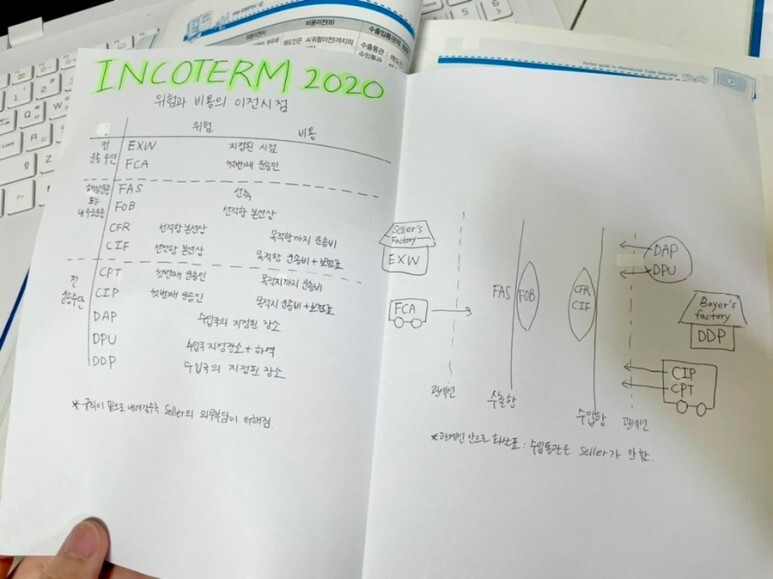 INCOTERM 2020
위험과 비용의 이전시점
위험 비용
전 운송수단
EXW 지정된 시점
FCA 첫번째 운송인
해상운송 또는 내수로운송
FAS 선측
FOB 선적항 본선상
CFR 선적항 본선상 목적항까지 운송비
CIF 선적항 본선상 목적항 운송비 + 보험료
전 운송수단
CPT 첫번째 운송인 목적지까지 운송비
CIP 첫번째 운송인 목적지 운송비 + 보험료
DAP 수입국의 지정된 장소
DPU 수입국 지정장소 + 하역
DDP 수입국의 지정된 장소
* 규칙이 밑으로 내려갈수록 Seller의 의무부담이 더해짐
Seller's Factory
EXW
FCA
관세선
수출항
FAS
FOB
CFR
CIF
수입항
관세선
DAP
DPU
Buyer's factory
DDP
CIP
CPT
* 관세선 안으로 화살표 : 수입통관은 Seller가 안함.